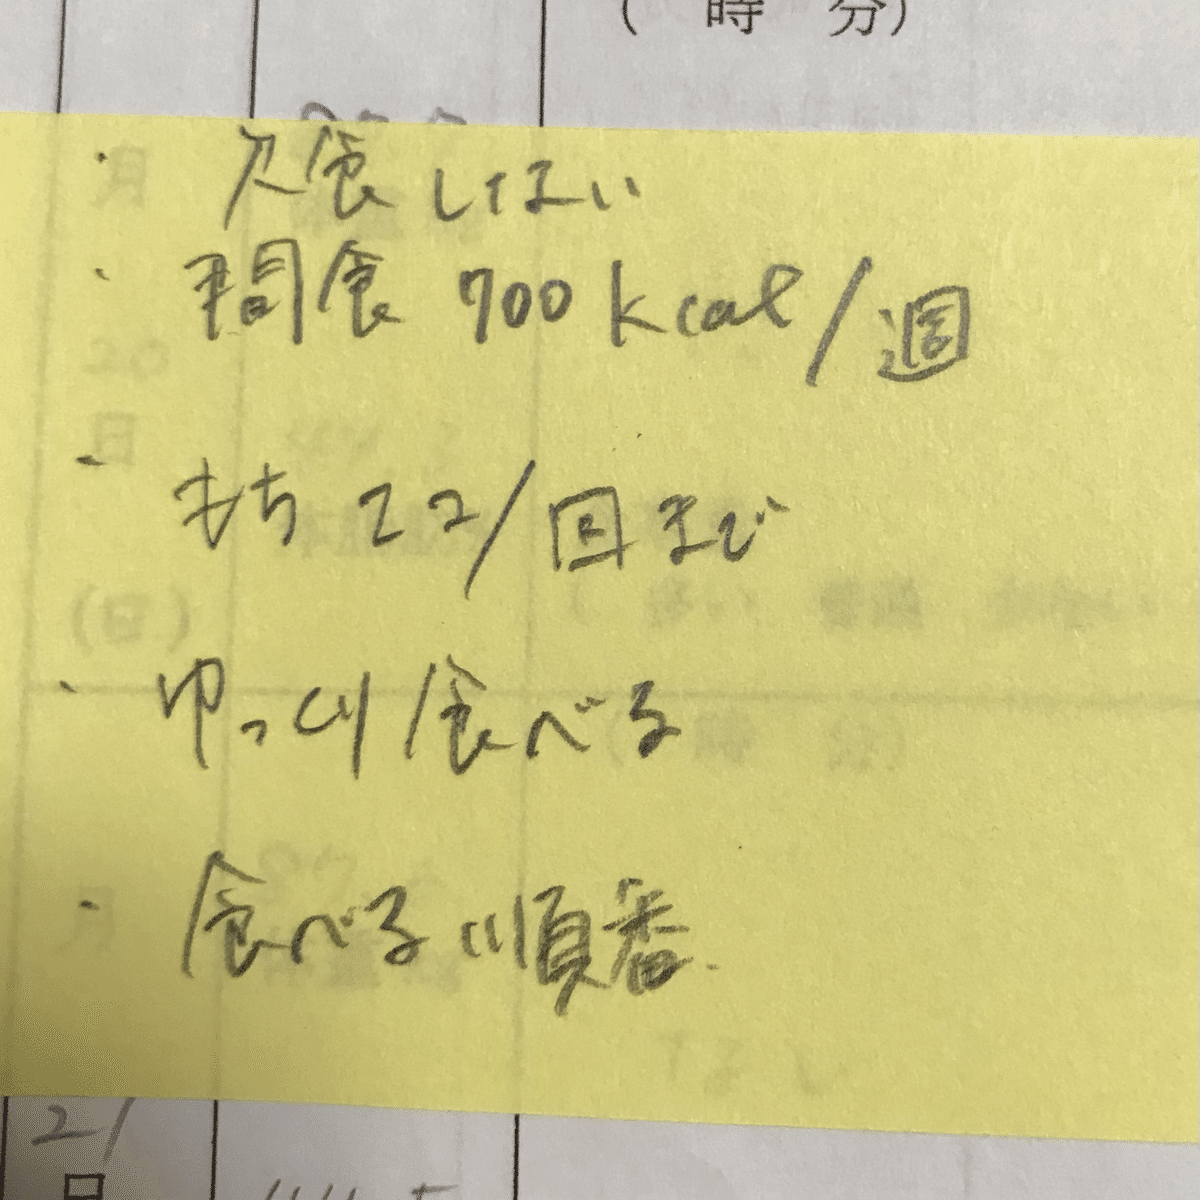 ( 時 分)
・ 欠食しない
・ 間食 700 kcal/週
・ もち 2コ/回まで
・ ゆっくり食べる
・ 食べる順番
21
日